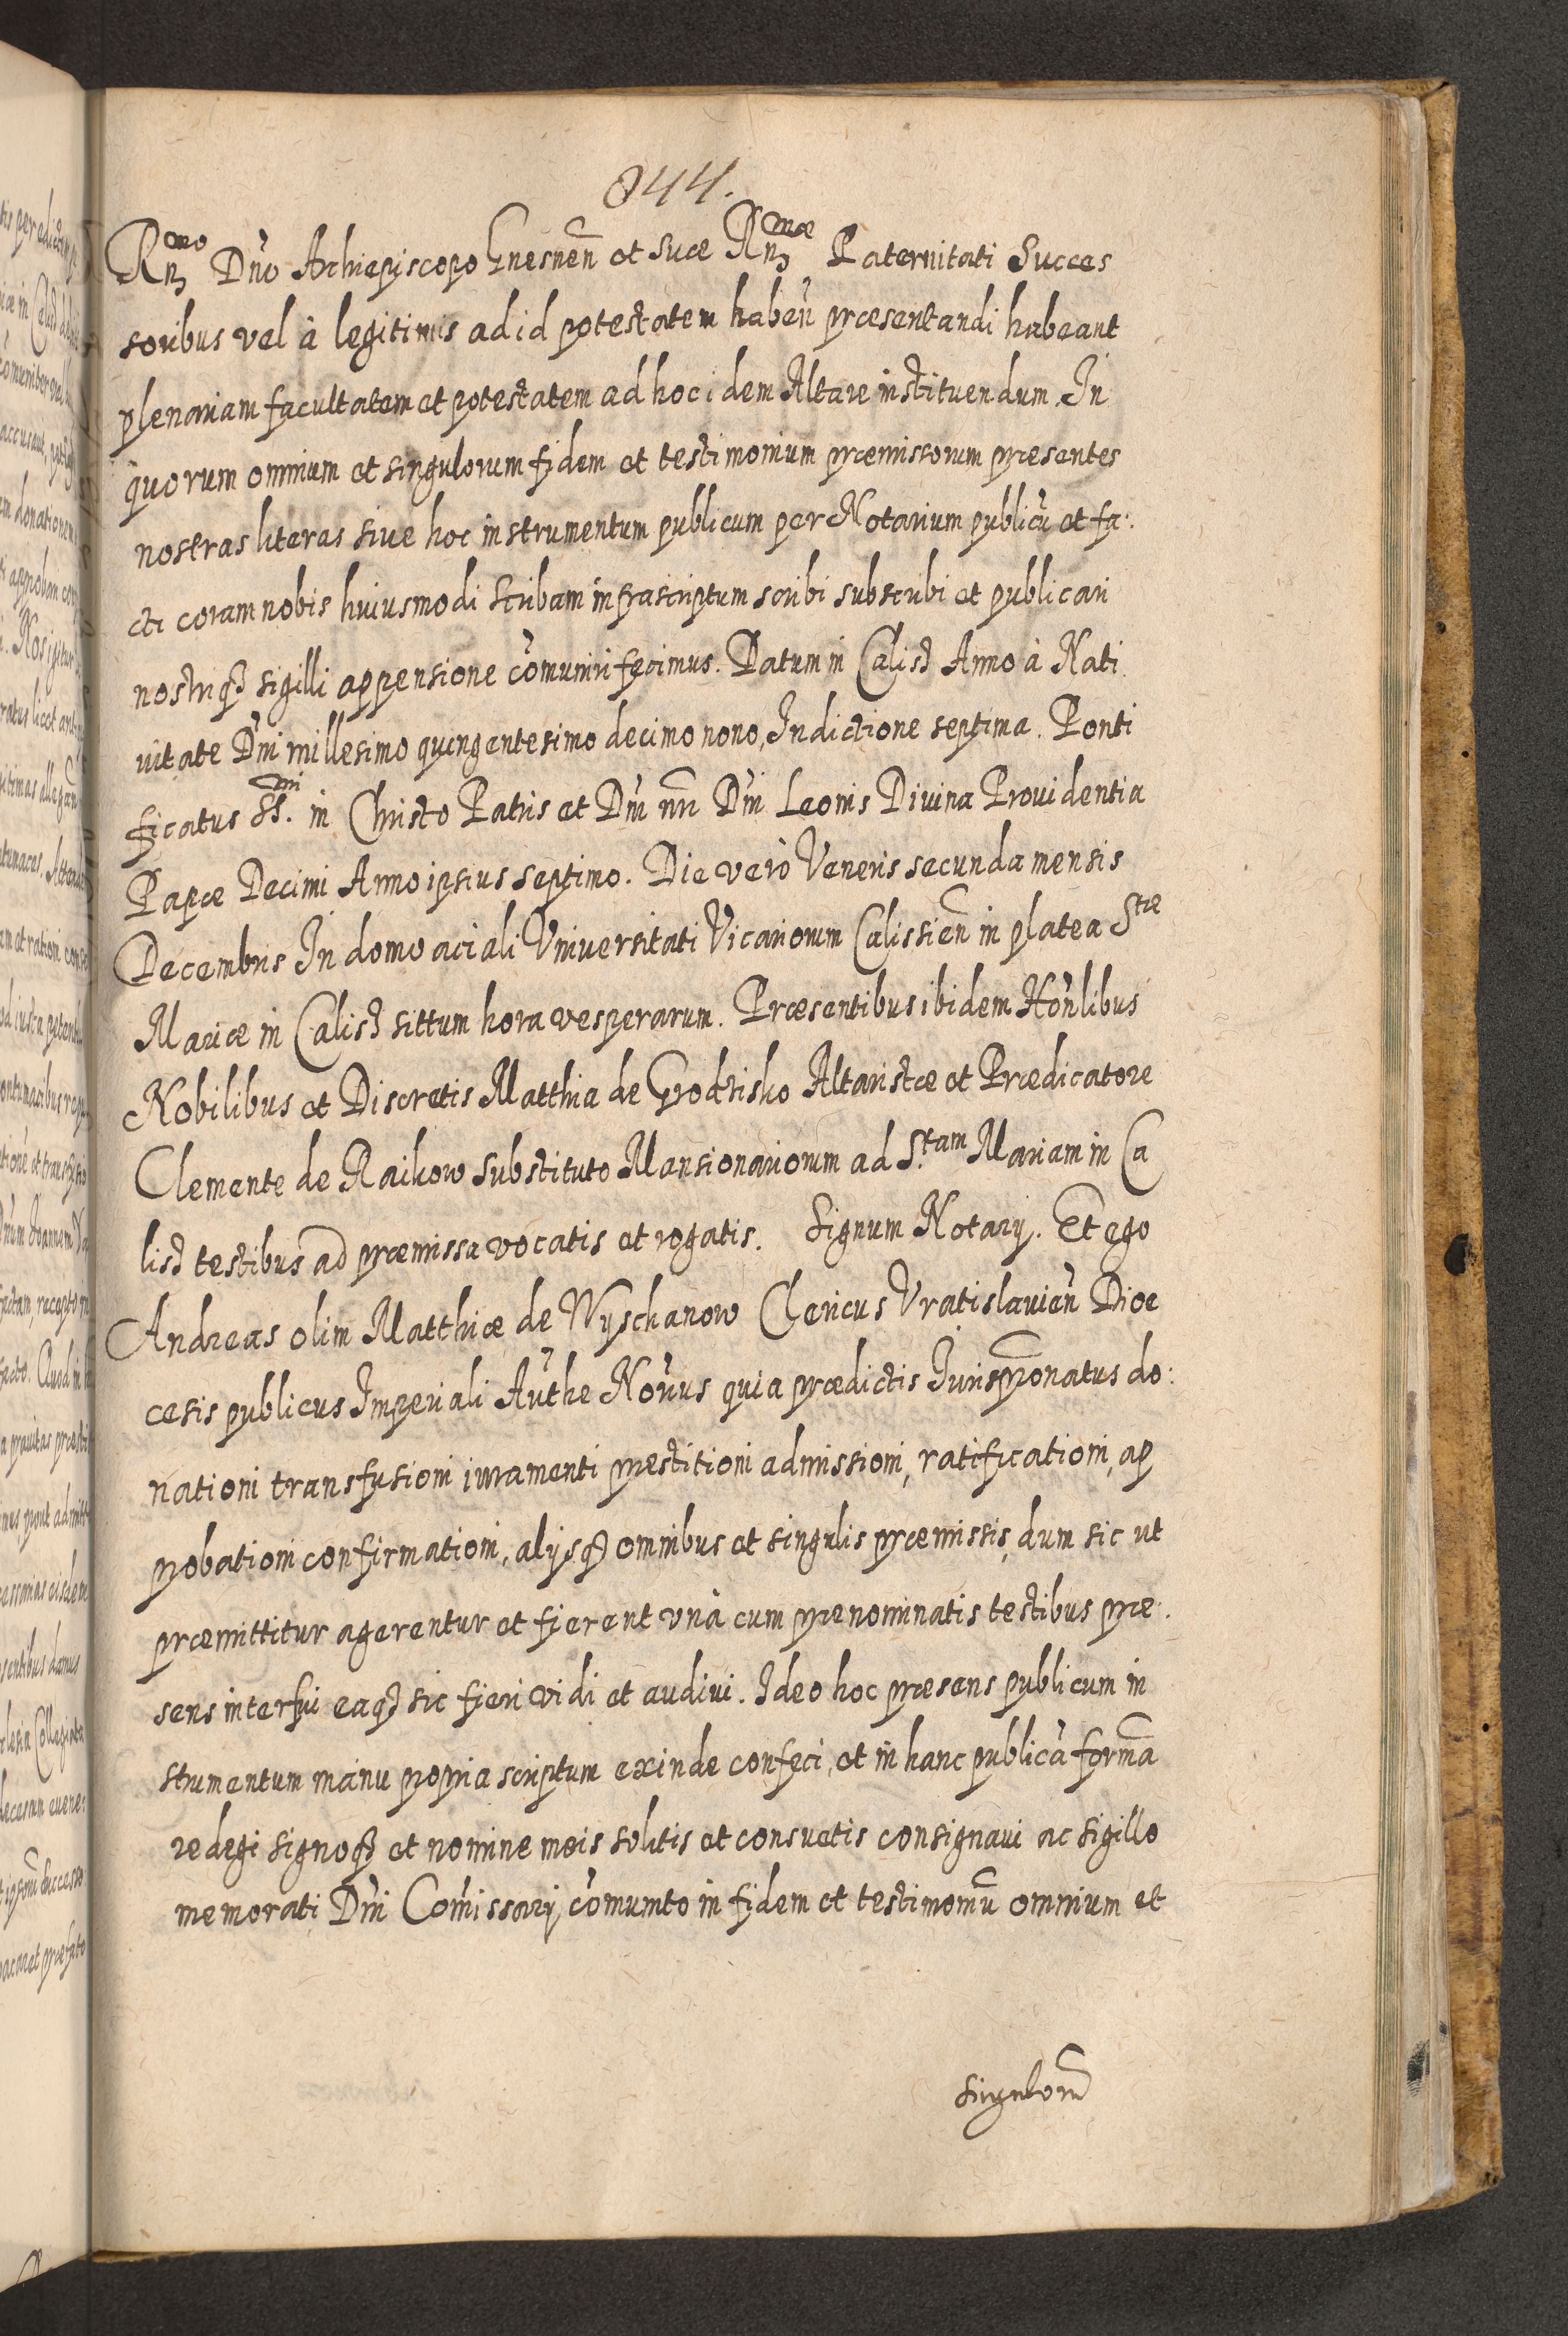 844.
Rmo Dno Archiepiscopo Gnesnen et suæ Rmæ Paternitati Succes
soribus vel à legitimis ad id potestatem haben præsentandi habeant
plenariam facultatem et potestatem ad hoc idem Altare instituendum. In
quorum omnium et singulorum fidem et testimonium præmissorum præsentes
nostras literas siue hoc instrumentum publicum per Notarium publicu et fa:
cti coram nobis huiusmodi scribam infrascriptum scribi subscribi et publicari
nostriqꝫ sigilli appensione comuniri fecimus. Datum in Calisꝫ Anno à Nati
uitate Dni millesimo quingentesimo decimo nono, Indictione septima. Ponti
ficatus SSmi. in Christo Patris et Dni nri Dni Leonis Diuina Prouidentia
Papæ Decimi Anno ipsius septimo. Die verò Veneris secunda mensis
Decembris In domo aciali Vniuersitati Vicariorum Calissien in platea Stæ
Mariæ in Calisꝫ sittum hora vesperarum. Præsentibus ibidem Honlibus
Nobilibus et Discretis Matthia de Grodzisko Altaristæ et Prædicatore
Clemente de Raikow substituto Mansionariorum ad S.tam Mariam in Ca
lisꝫ testibus ad præmissa vocatis et rogatis. Signum Notarij. Et ego
Andreas olim Matthiæ de Wyschanow Clericus Vratislauien Dioe
cesis publicus Imperiali Authe Norius quia prædictis Jurispronatus do:
nationi transfusioni iuramenti præstitioni admissioni, ratificationi, ap
probationi confirmationi, alijsqꝫ omnibus et singulis præmissis, dum sic ut
præmittitur agerentur et fierent vnà cum prænominatis testibus præ:
sens interfui eaqꝫ sic fieri vidi et audiui. Ideo hoc præsens publicum in
strumentum manu propria scriptum exinde confeci, et in hanc publicã formã
redegi signoqꝫ et nomine meis solitis et consuetis consignaui ac sigillo
memorati Dni Comissarij comunito in fidem et testimoniũ omnium et
singulorũ